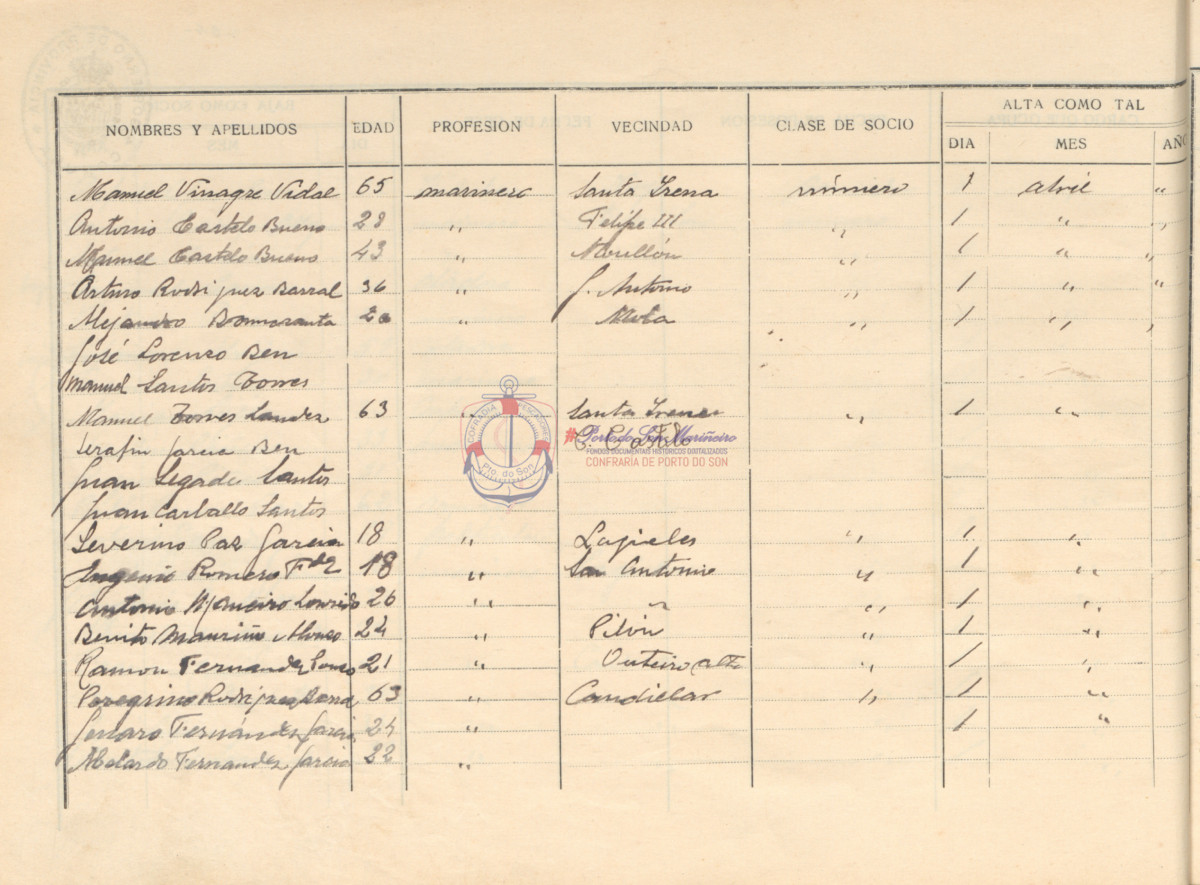 ALTA COMO TAL
NOMBRES Y APELLIDOS EDAD PROFESION VECINDAD CLASE DE SOCIO DIA MES AÑO
Manuel Vinagre Vidal 65 marinero Santa Irena número 1 abril "
Antonio Castelo Bueno 28 " Felipe III " 1 " "
Manuel Castelo Bueno 43 " " 1 " "
Arturo Rodriguez Barral 36 " S. Antonio " 1 " "
Alejandro " " 1 " "
José Lorenzo Ben
Manuel Santos Torres
Manuel Torres 63 " Santa Irena " 1 "
C. Castelo
Serafin Garcia Ben
Juan Segade Santos
Juan Carballo Santos
Severino Paz Garcia 18 " " 1 "
Eugenio Romero Fdez 18 " San Antonio " 1 "
Antonio Maneiro 26 " " " 1 "
Benito Mauriño Alonso 24 " Pilón " 1 "
Ramon Fernandez 21 " Outeiro alto " 1 "
Peregrino Rodriguez 63 " " 1 "
Genaro Fernández Garcia 24 " 1 "
Abelardo Fernandez Garcia 22 "
COFRADIA PESCADORES
Pto. do Son
#Porto do Son Mariñeiro
FONDOS DOCUMENTAIS HISTÓRICOS DIXITALIZADOS
CONFRARÍA DE PORTO DO SON